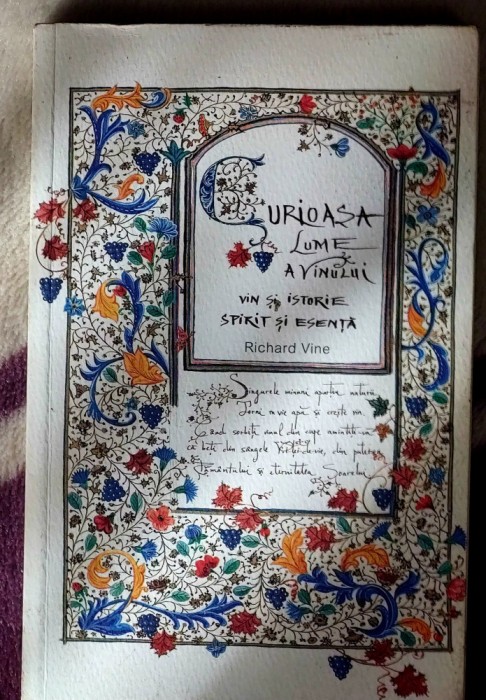 CURIOASA
LUME
A VINULUI
VIN ȘI ISTORIE
SPIRIT ȘI ESENȚĂ
Richard Vine
Singurele minuni aparțin naturii.
Iarna nu vie apă și crește vin.
Când sorbiți unul din cupe amintiți-vă
că beți din sângele din puterea
Pământului & eternitatea Soarelui